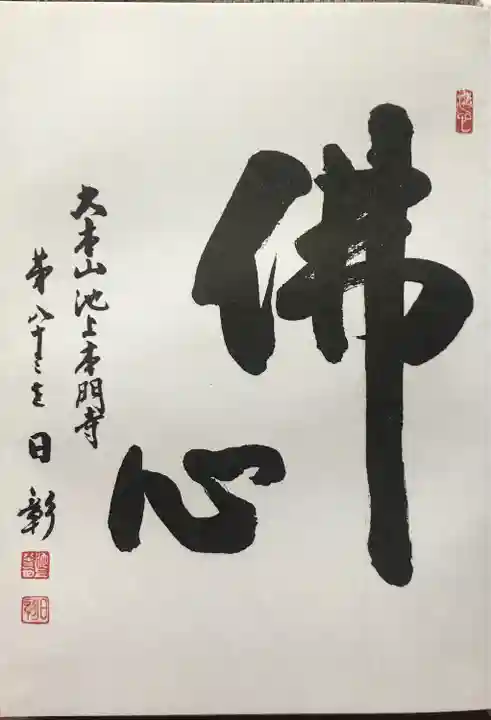 佛心
大本山池上本門寺
第八十三世 日彰